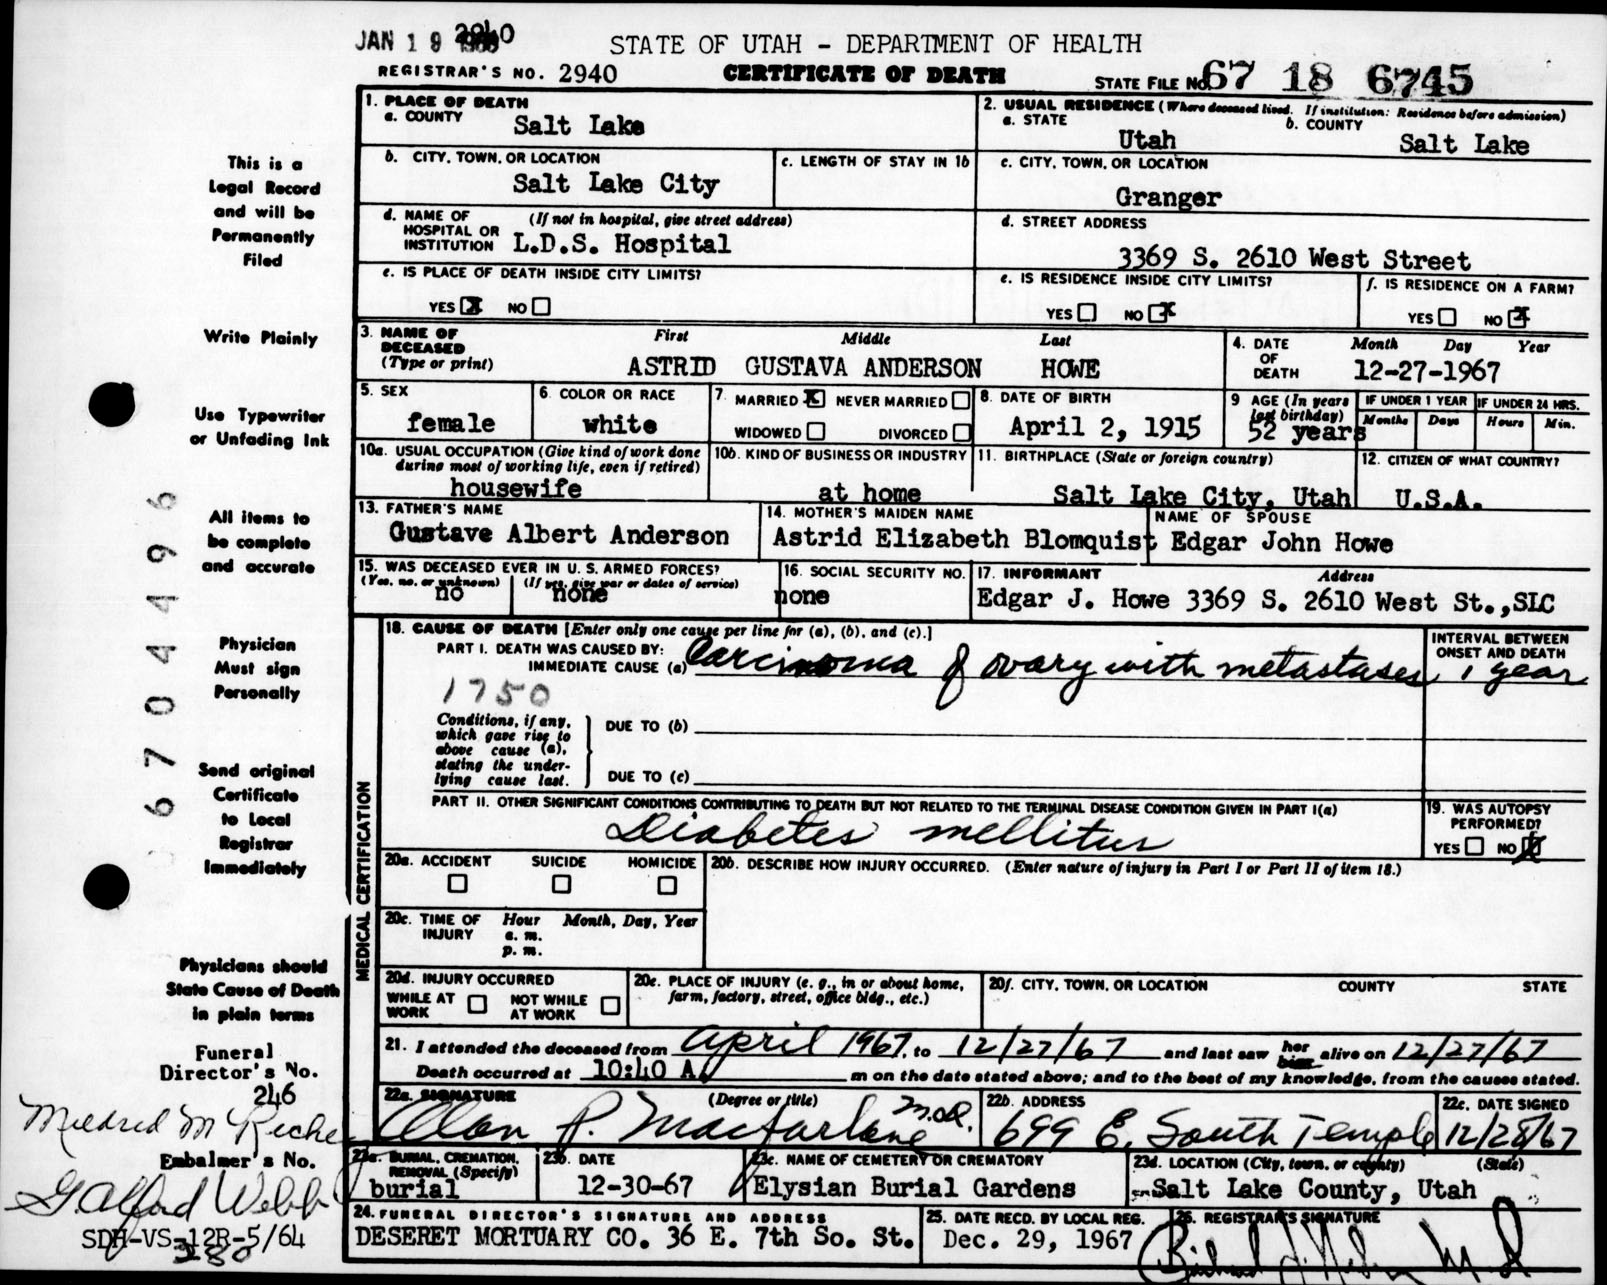 JAN 19 2940
STATE OF UTAH - DEPARTMENT OF HEALTH
REGISTRAR'S NO. 2940
CERTIFICATE OF DEATH
STATE FILE NO. 67 18 6745
1. PLACE OF DEATH
a. COUNTY
Salt Lake
2. USUAL RESIDENCE (Where deceased lived. If institution: Residence before admission)
a. STATE
Utah
b. COUNTY
Salt Lake
b. CITY, TOWN, OR LOCATION
Salt Lake City
c. LENGTH OF STAY IN 1b
c. CITY, TOWN, OR LOCATION
Granger
d. NAME OF HOSPITAL OR INSTITUTION
(If not in hospital, give street address)
L.D.S. Hospital
d. STREET ADDRESS
3369 S. 2610 West Street
e. IS PLACE OF DEATH INSIDE CITY LIMITS?
YES X NO
e. IS RESIDENCE INSIDE CITY LIMITS?
YES NO X
f. IS RESIDENCE ON A FARM?
YES NO X
3. NAME OF DECEASED
(Type or print)
First Middle Last
ASTRID GUSTAVA ANDERSON HOWE
4. DATE OF DEATH
Month Day Year
12-27-1967
5. SEX
female
6. COLOR OR RACE
white
7. MARRIED X NEVER MARRIED
WIDOWED DIVORCED
8. DATE OF BIRTH
April 2, 1915
9 AGE (In years last birthday)
52 years
IF UNDER 1 YEAR
Months Days
IF UNDER 24 HRS.
Hours Min.
10a. USUAL OCCUPATION (Give kind of work done during most of working life, even if retired)
housewife
10b. KIND OF BUSINESS OR INDUSTRY
at home
11. BIRTHPLACE (State or foreign country)
Salt Lake City, Utah
12. CITIZEN OF WHAT COUNTRY?
U.S.A.
13. FATHER'S NAME
Gustave Albert Anderson
14. MOTHER'S MAIDEN NAME
Astrid Elizabeth Blomquist
NAME OF SPOUSE
Edgar John Howe
15. WAS DECEASED EVER IN U. S. ARMED FORCES?
(Yes, no, or unknown) (If yes, give war or dates of service)
no none
16. SOCIAL SECURITY NO.
none
17. INFORMANT Address
Edgar J. Howe 3369 S. 2610 West St.,SLC
18. CAUSE OF DEATH [Enter only one cause per line for (a), (b), and (c).]
PART I. DEATH WAS CAUSED BY:
IMMEDIATE CAUSE (a) Carcinoma of ovary with metastases
INTERVAL BETWEEN ONSET AND DEATH
1 year
1750
Conditions, if any, which gave rise to above cause (a), stating the underlying cause last.
DUE TO (b)
DUE TO (c)
PART II. OTHER SIGNIFICANT CONDITIONS CONTRIBUTING TO DEATH BUT NOT RELATED TO THE TERMINAL DISEASE CONDITION GIVEN IN PART I(a)
Diabetes mellitus
19. WAS AUTOPSY PERFORMED?
YES NO X
MEDICAL CERTIFICATION
20a. ACCIDENT SUICIDE HOMICIDE
20b. DESCRIBE HOW INJURY OCCURRED. (Enter nature of injury in Part I or Part II of item 18.)
20c. TIME OF INJURY Hour Month, Day, Year
a. m.
p. m.
20d. INJURY OCCURRED
WHILE AT WORK NOT WHILE AT WORK
20e. PLACE OF INJURY (e. g., in or about home, farm, factory, street, office bldg., etc.)
20f. CITY, TOWN, OR LOCATION COUNTY STATE
21. I attended the deceased from April 1967, to 12/27/67 and last saw her him alive on 12/27/67
Death occurred at 10:40 A m on the date stated above; and to the best of my knowledge, from the causes stated.
22a. SIGNATURE (Degree or title)
Alan P. Macfarlane M.D.
22b. ADDRESS
699 E. South Temple
22c. DATE SIGNED
12/28/67
23a. BURIAL, CREMATION, REMOVAL (Specify)
burial
23b. DATE
12-30-67
23c. NAME OF CEMETERY OR CREMATORY
Elysian Burial Gardens
23d. LOCATION (City, town, or county) (State)
Salt Lake County, Utah
24. FUNERAL DIRECTOR'S SIGNATURE AND ADDRESS
DESERET MORTUARY CO. 36 E. 7th So. St.
25. DATE RECD. BY LOCAL REG.
Dec. 29, 1967
26. REGISTRAR'S SIGNATURE
This is a
Legal Record
and will be
Permanently
Filed
Write Plainly
Use Typewriter
or Unfading Ink
All items to
be complete
and accurate
Physician
Must sign
Personally
Send original
Certificate
to Local
Registrar
Immediately
Physicians should
State Cause of Death
in plain terms
6704496
Funeral
Director's No.
246
Mildred M
Embalmer's No.
G. Alford Webb
280
SDH-VS-12R-5/64